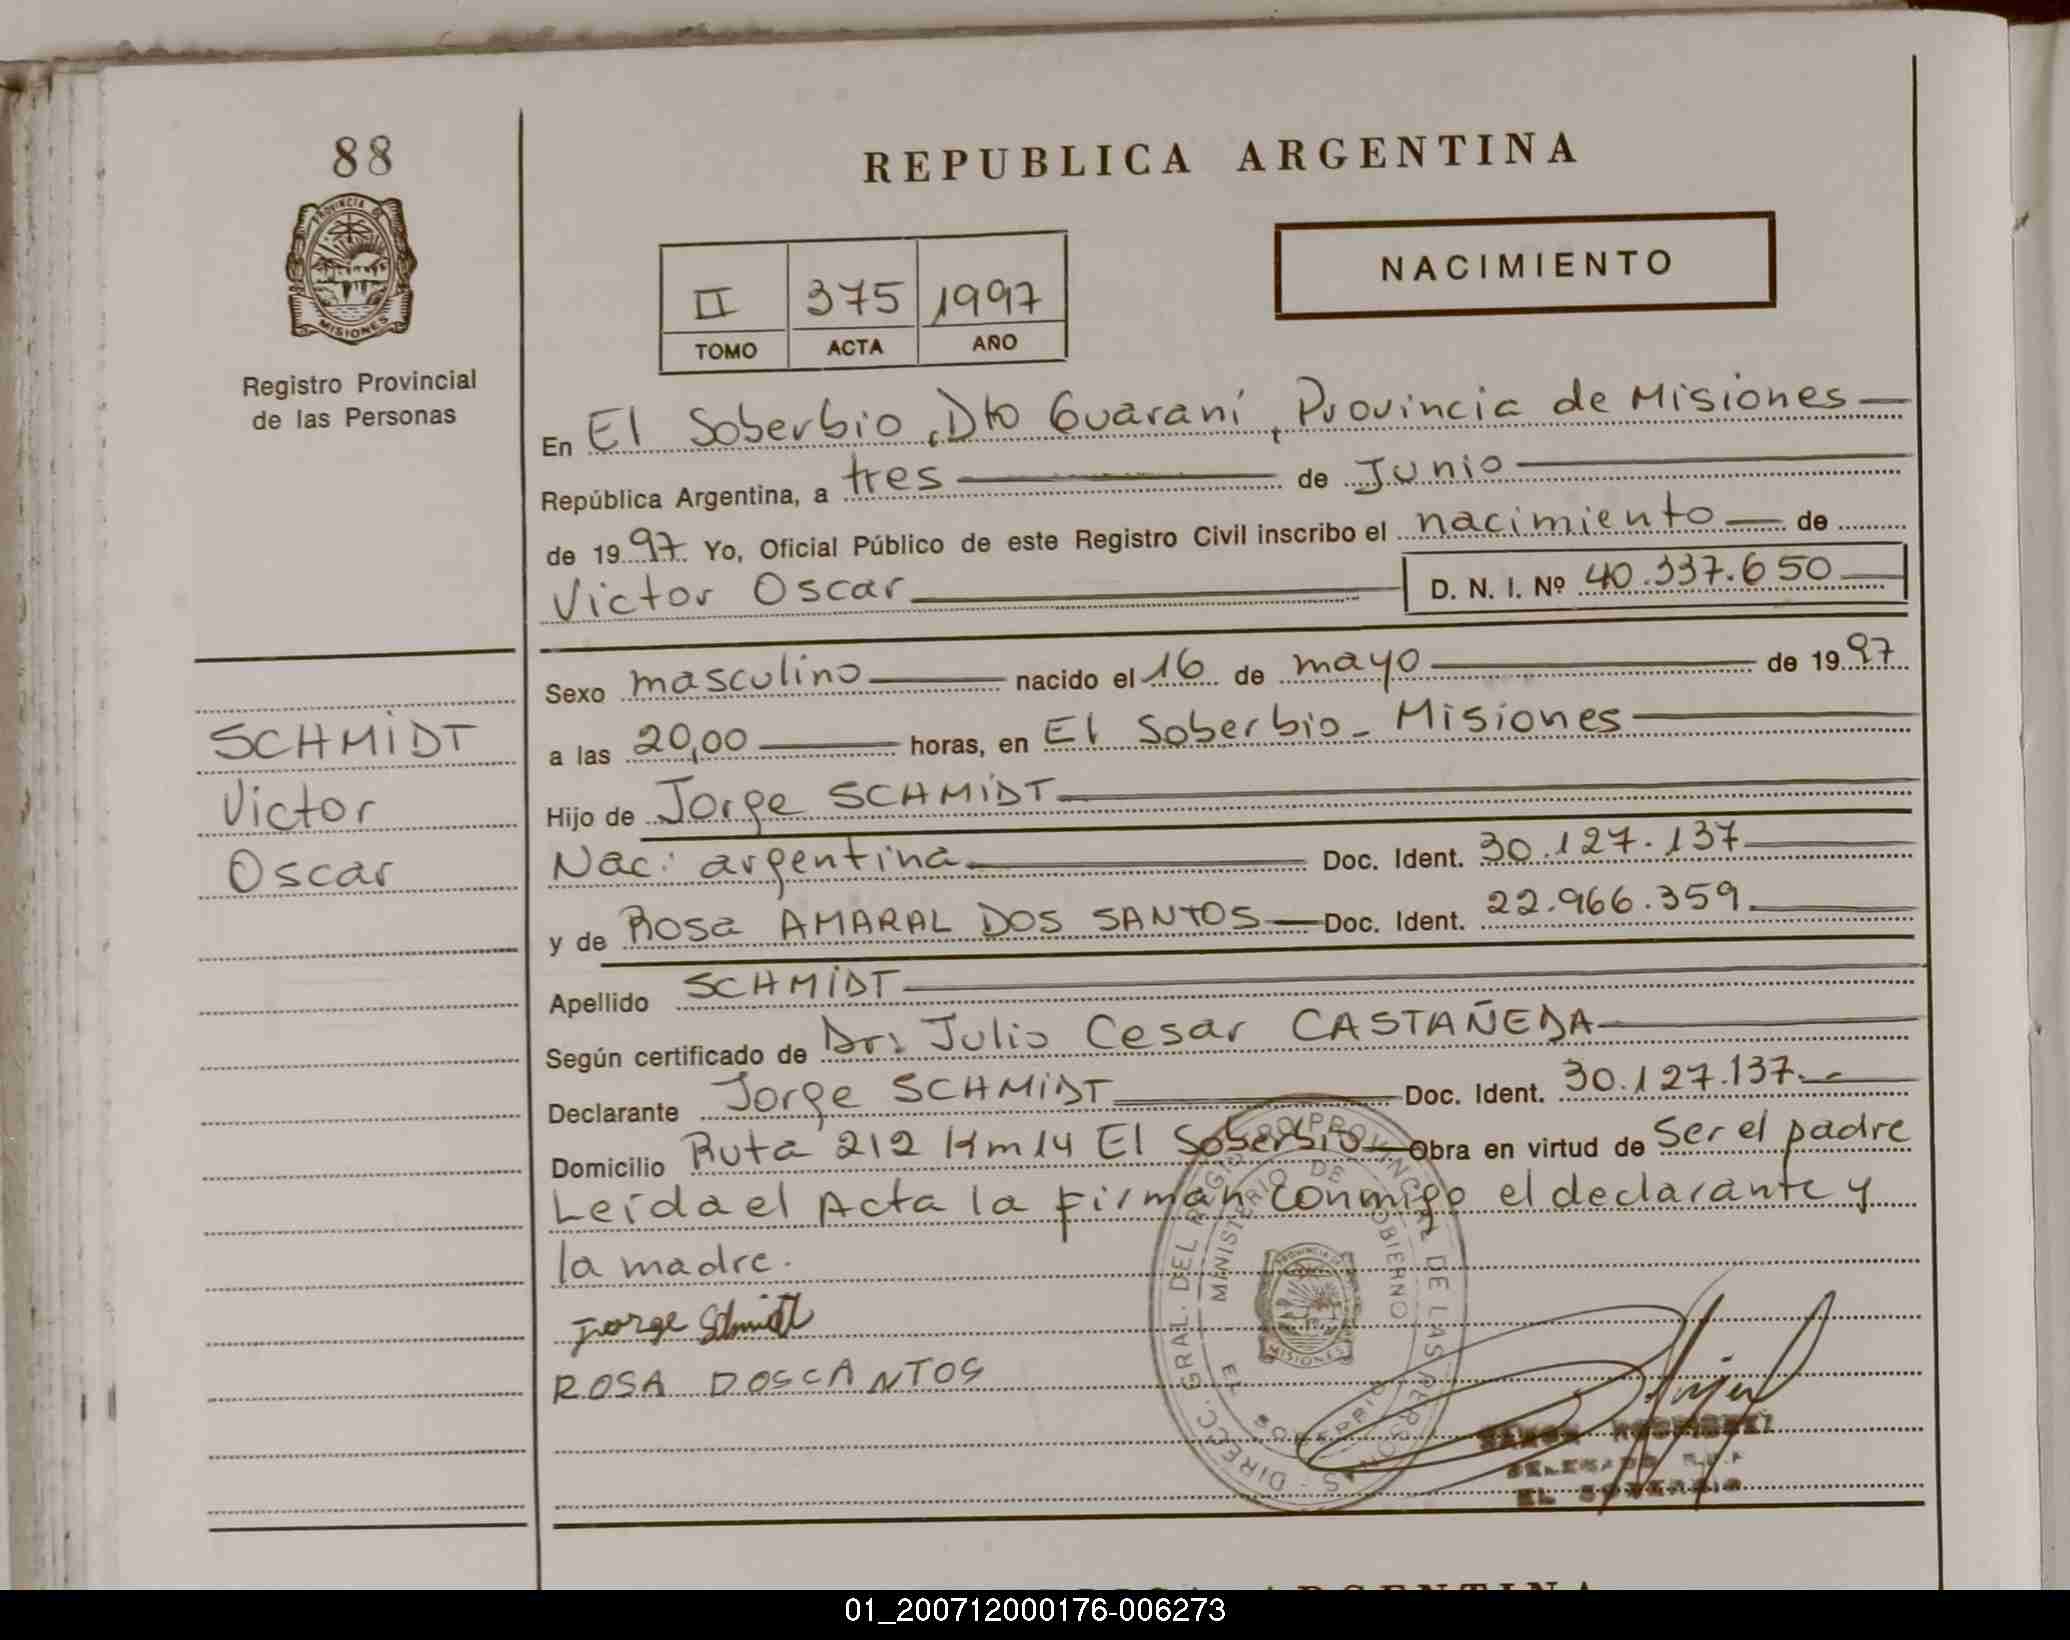 88
PROVINCIA DE
MISIONES
Registro Provincial
de las Personas
SCHMIDT
Victor
Oscar
REPUBLICA ARGENTINA
NACIMIENTO
II 375 1997
TOMO ACTA AÑO
En El Soberbio, Dto Guaraní, Provincia de Misiones
República Argentina, a tres de Junio
de 1997. Yo, Oficial Público de este Registro Civil inscribo el nacimiento de
Victor Oscar D. N. I. Nº 40.337.650
Sexo masculino nacido el 16 de mayo de 1997
a las 20,00 horas, en El Soberbio - Misiones
Hijo de Jorge SCHMIDT
Nac: argentina Doc. Ident. 30.127.137
y de Rosa AMARAL DOS SANTOS Doc. Ident. 22.966.359
Apellido SCHMIDT
Según certificado de Dr: Julio Cesar CASTAÑEDA
Declarante Jorge SCHMIDT Doc. Ident. 30.127.137.-
Domicilio Ruta 212 Km 14 El Soberbio Obra en virtud de Ser el padre
Leída el Acta la firman conmigo el declarante y
la madre.
Jorge Schmidt
ROSA DOSCANTOS
DIRECC. GRAL. DEL REGISTRO PROVINCIAL DE LAS PERSONAS
MINISTERIO DE GOBIERNO
EL SOBERBIO
PROVINCIA DE
MISIONES
RODRIGUEZ
DELEGADO
EL SOBERBIO
01_200712000176-006273